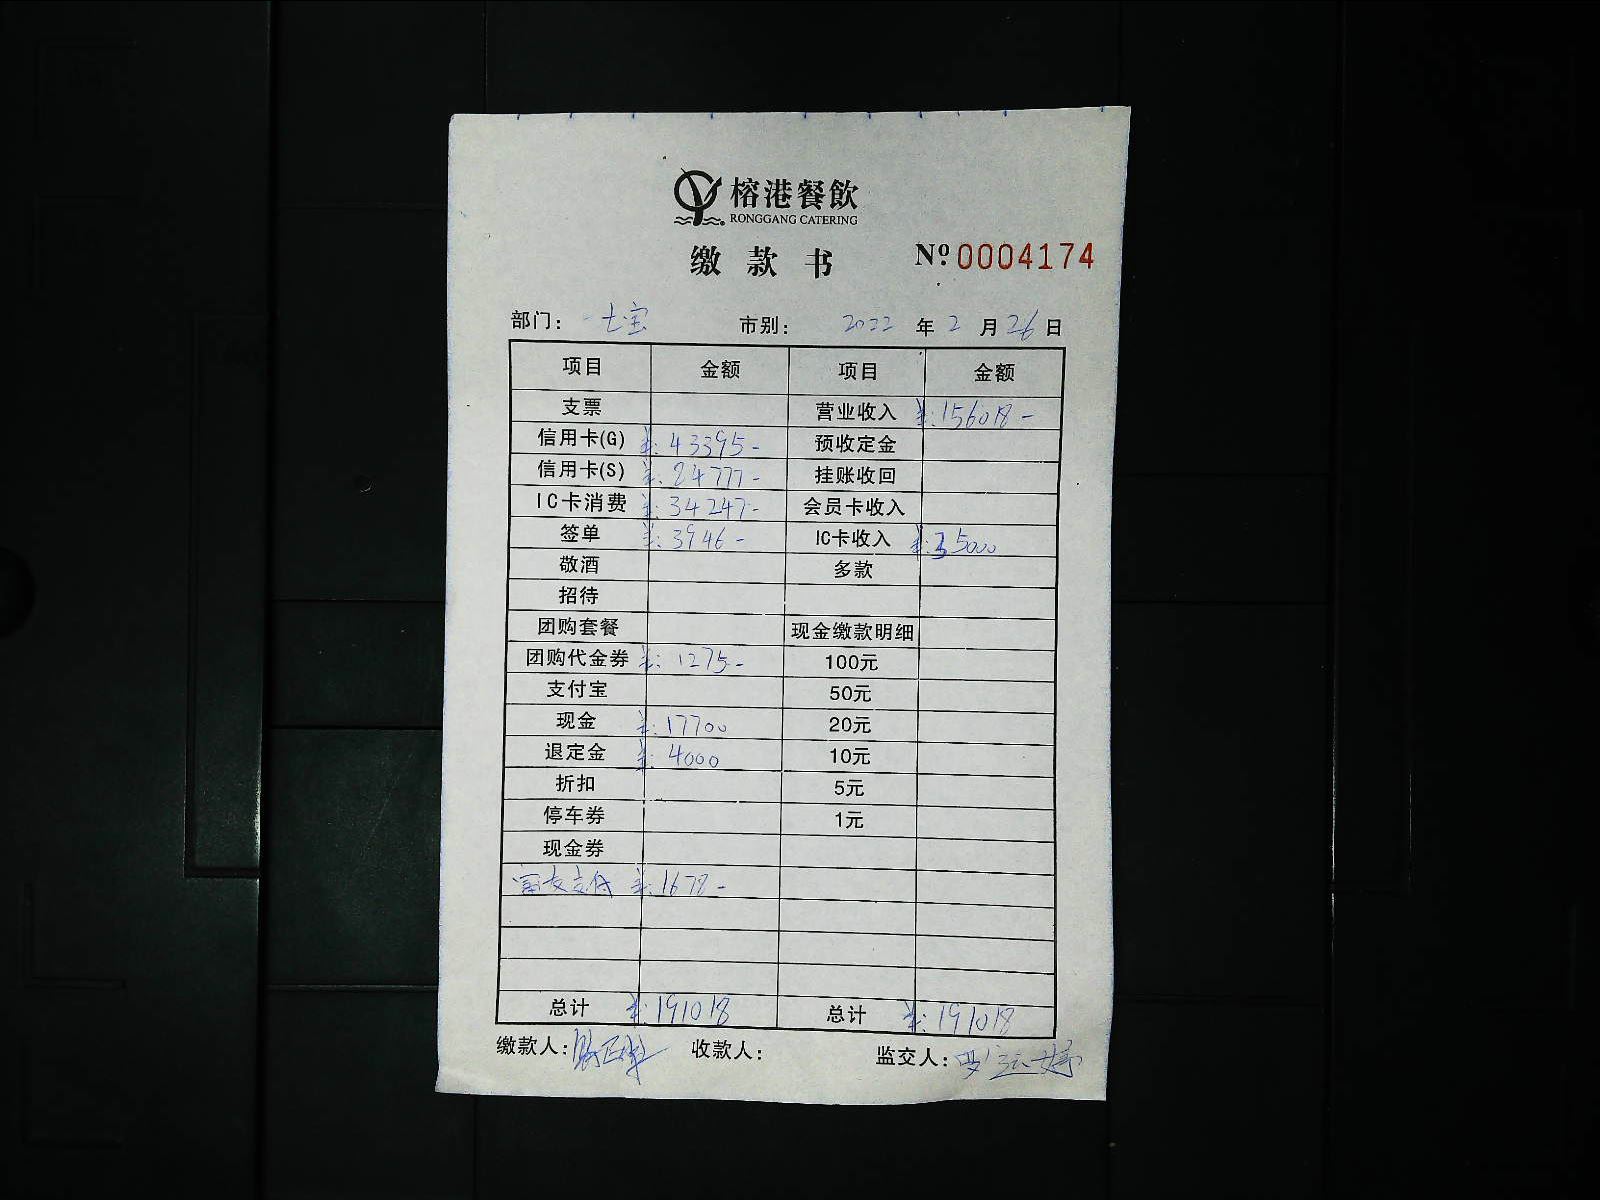 榕港餐飲
RONGGANG CATERING
缴款书 № 0004174
部门: 七宝 市别: 2022 年 2 月 26 日
项目 金额 项目 金额
支票 营业收入 ¥:156018-
信用卡(G) ¥:43395- 预收定金
信用卡(S) ¥:24777- 挂账收回
IC卡消费 ¥:34247- 会员卡收入
签单 ¥:3946- IC卡收入 ¥:35000
敬酒 多款
招待
团购套餐 现金缴款明细
团购代金券 ¥:1275- 100元
支付宝 50元
现金 ¥:17700 20元
退定金 ¥:4000 10元
折扣 5元
停车券 1元
现金券
支付 ¥:1678-
总计 ¥:191018 总计 ¥:191018
缴款人: 收款人: 监交人: